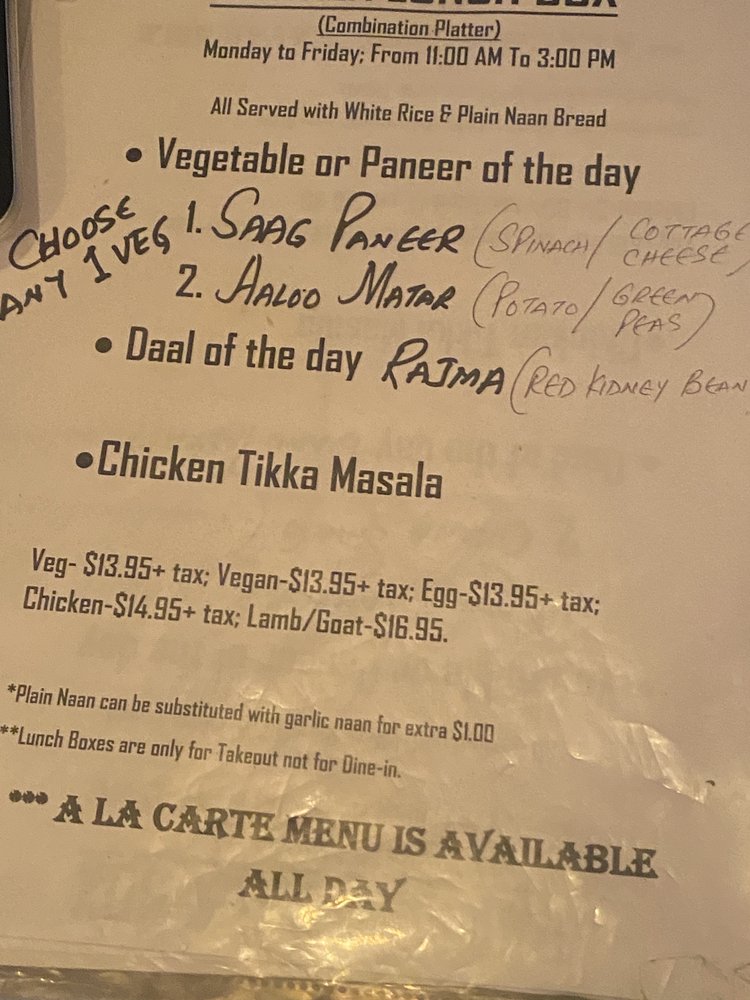 (Combination Platter)
Monday to Friday; From 11:00 AM To 3:00 PM
All Served with White Rice & Plain Naan Bread
• Vegetable or Paneer of the day
CHOOSE ANY 1 VEG
1. SAAG PANEER (SPINACH/ COTTAGE CHEESE)
2. AALOO MATAR (POTATO/ GREEN PEAS)
• Daal of the day RAJMA (RED KIDNEY BEAN
•Chicken Tikka Masala
Veg- $13.95+ tax; Vegan-$13.95+ tax; Egg-$13.95+ tax;
Chicken-$14.95+ tax; Lamb/Goat-$16.95.
*Plain Naan can be substituted with garlic naan for extra $1.00
**Lunch Boxes are only for Takeout not for Dine-in.
*** A LA CARTE MENU IS AVAILABLE
ALL DAY